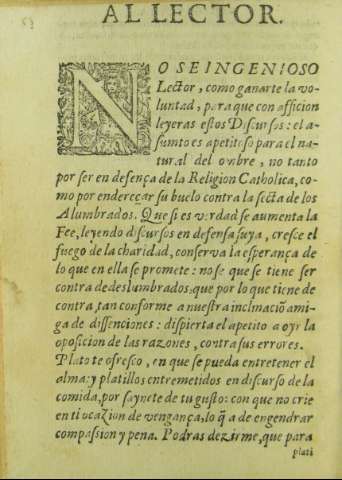 AL LECTOR.
NO SE INGENIOSO
Lector, como ganarte la vo-
luntad, para que con afficion
leyeras estos Discursos: el a-
sumto es apetitoso para el na-
tural del ombre, no tanto
por ser en defença de la Religion Catholica, co-
mo por endereçar su buelo contra la secta de los
Alumbrados. Que si es verdad se aumenta la
Fee, leyendo discursos en defensa suya, cresce el
fuego de la charidad, conserva la esperança de
lo que en ella se promete: no se que se tiene ser
contra de deslumbrados, que por lo que tiene de
contra, tan conforme a nuestra inclinaciõ ami-
ga de dissenciones: dispierta el apetito a oyr la
oposicion de las razones, contra sus errores.
Plato te ofresco, en que se pueda entretener el
alma: y platillos entremetidos en discurso de la
comida, por saynete de tu gusto: con que no crie
en ti ocazion de vengança, lo q̃ a de engendrar
compassion y pena. Podras dezirme, que para
plati